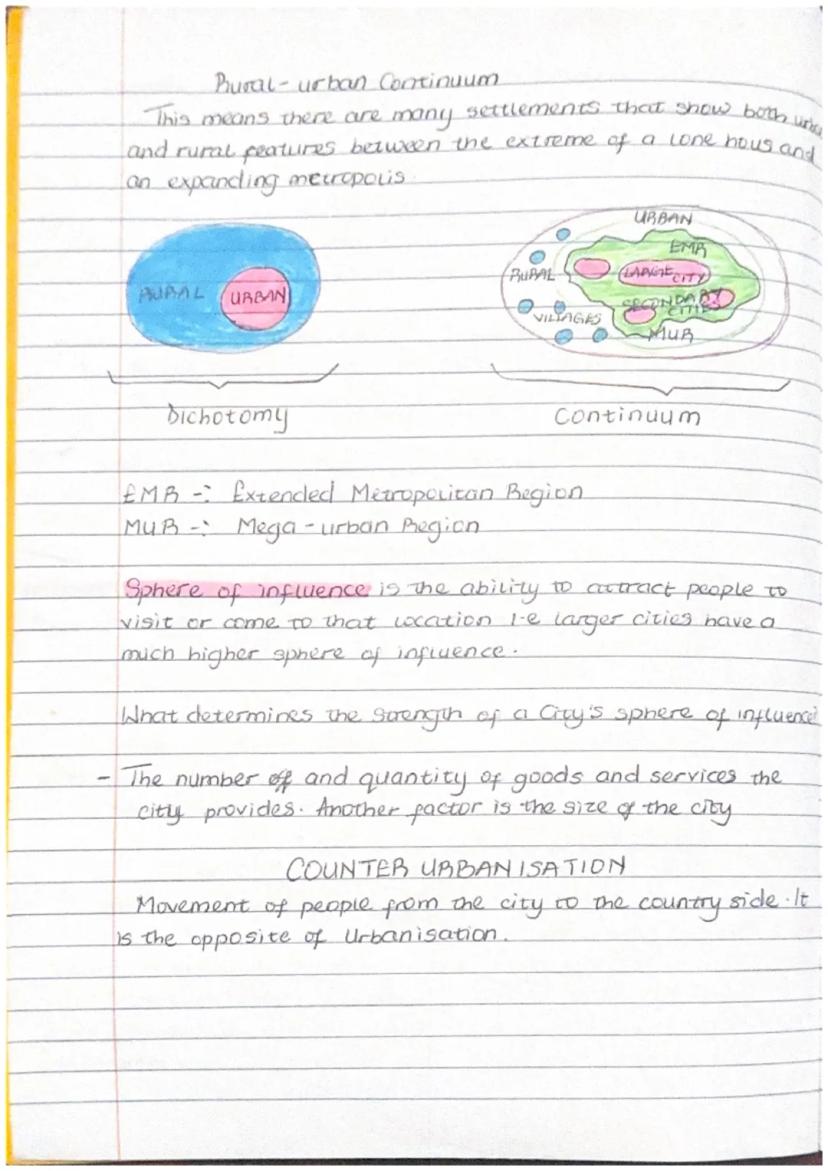 Rural-urban Continuum
This means there are many settlements that show both urba
and rural features between the extreme of a lone hous and
an expanding metropolis
URBAN
EMR
RURAL
LARGE CITY
RURAL
URBAN
SECONDARY
CITIES
VILLAGES
MUR
Dichotomy
Continuum
EMR -: Extended Metropolitan Region
MUR -: Mega-urban Region
Sphere of influence is the ability to attract people to
visit or come to that location I-e larger cities have a
much higher sphere of influence.
What determines the strength of a City's sphere of influence
- The number of and quantity of goods and services the
city provides. Another factor is the size of the city
COUNTER URBANISATION
Movement of people from the city to the country side. It
is the opposite of Urbanisation.